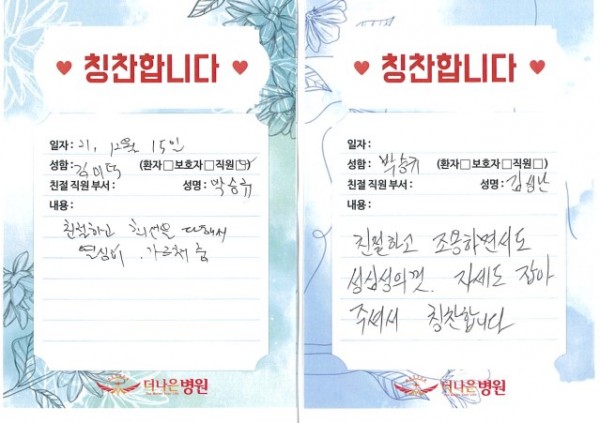 ♥ 칭찬합니다 ♥
일자: 21, 12월 15일
성함: (환자□보호자□직원☑)
친절 직원 부서: 성명: 박승규
내용:
친절하고 최선을 다해서
열심히 가르쳐 줌
더나은병원
♥ 칭찬합니다 ♥
일자:
성함: 박승규 (환자□보호자□직원□)
친절 직원 부서: 성명:
내용:
친절하고 조용하면서도
성심성의껏. 자세도 잡아
주셔서 칭찬합니다
더나은병원